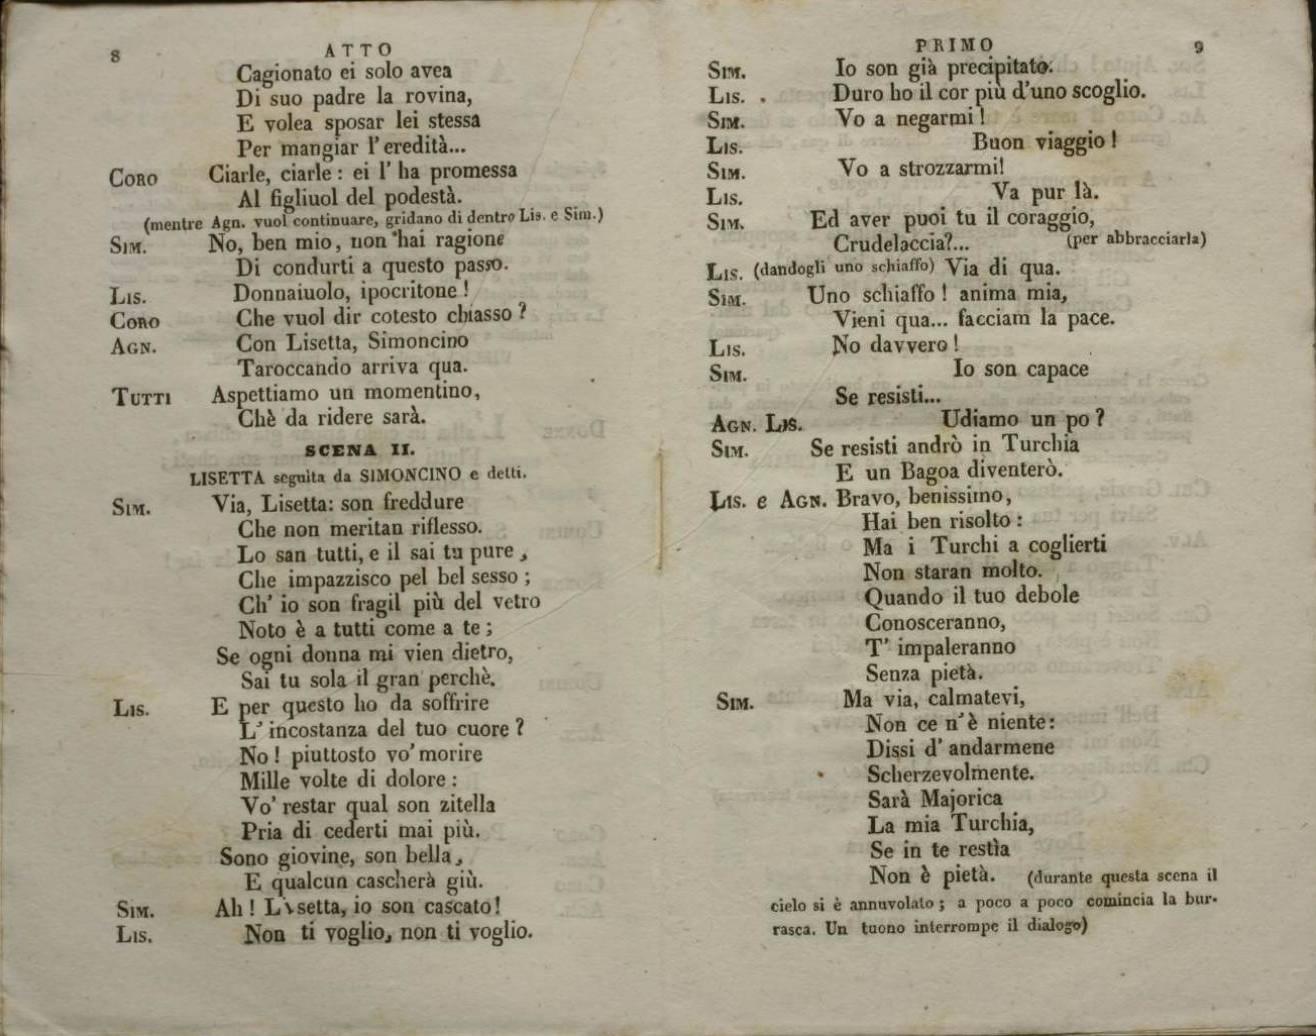 8
ATTO
Cagionato ei solo avea
Di suo padre la rovina,
E volea sposar lei stessa
Per mangiar l'eredità...
CORO Ciarle, ciarle: ei l'ha promessa
Al figliuol del podestà.
(mentre Agn. vuol continuare, gridano di dentro Lis. e Sim.)
SIM. No, ben mio, non hai ragione
Di condurti a questo passo.
LIS. Donnaiuolo, ipocritone!
CORO Che vuol dir cotesto chiasso?
AGN. Con Lisetta, Simoncino
Taroccando arriva qua.
TUTTI Aspettiamo un momentino,
Chè da ridere sarà.
SCENA II.
LISETTA seguita da SIMONCINO e detti.
SIM. Via, Lisetta: son freddure
Che non meritan riflesso.
Lo san tutti, e il sai tu pure,
Che impazzisco pel bel sesso;
Ch' io son fragil più del vetro
Noto è a tutti come a te;
Se ogni donna mi vien dietro,
Sai tu sola il gran perchè.
LIS. E per questo ho da soffrire
L' incostanza del tuo cuore?
No! piuttosto vo' morire
Mille volte di dolore:
Vo' restar qual son zitella
Pria di cederti mai più.
Sono giovine, son bella,
E qualcun cascherà giù.
SIM. Ah! Lisetta, io son cascato!
LIS. Non ti voglio, non ti voglio.
PRIMO
9
SIM. Io son già precipitato.
LIS. Duro ho il cor più d'uno scoglio.
SIM. Vo a negarmi!
LIS. Buon viaggio!
SIM. Vo a strozzarmi!
LIS. Va pur là.
SIM. Ed aver puoi tu il coraggio,
Crudelaccia?... (per abbracciarla)
LIS. (dandogli uno schiaffo) Via di qua.
SIM. Uno schiaffo! anima mia,
Vieni qua... facciam la pace.
LIS. No davvero!
SIM. Io son capace
Se resisti...
AGN. LIS. Udiamo un po?
SIM. Se resisti andrò in Turchia
E un Bagoa diventerò.
LIS. e AGN. Bravo, benissimo,
Hai ben risolto:
Ma i Turchi a coglierti
Non staran molto.
Quando il tuo debole
Conosceranno,
T' impaleranno
Senza pietà.
SIM. Ma via, calmatevi,
Non ce n'è niente:
Dissi d' andarmene
Scherzevolmente.
Sarà Majorica
La mia Turchia,
Se in te restìa
Non è pietà. (durante questa scena il
cielo si è annuvolato; a poco a poco comincia la bur-
rasca. Un tuono interrompe il dialogo)